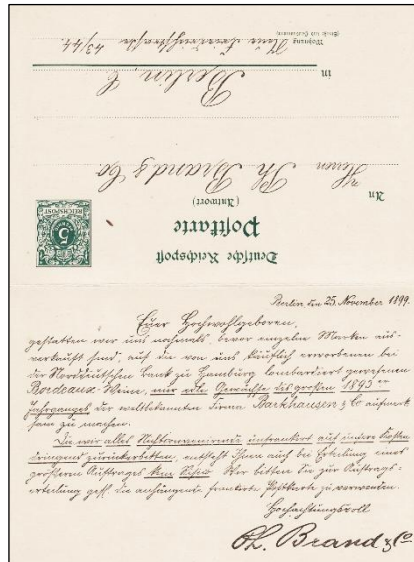 Deutsche Reichspost
Postkarte
(Antwort)
REICHSPOST
5
An
Herrn Ph. Brand & Co.
in Berlin, C
Wohnung
(Straße und Hausnummer)
Neue Friedrichstraße 43/44.
Berlin, den 25. November 1899.
Euer Hochwohlgeboren,
gestatten wir uns nochmals, bevor einzelne Marken aus-
verkauft sind, auf die von uns käuflich erworbenen bei
der Norddeutschen Bank zu Hamburg lombardiert gewesenen
Bordeaux-Weine, nur edle Gewächse des großen 1893er
Jahrganges der weltbekannten Firma Barkhausen & Co aufmerk-
sam zu machen.
Da wir alles Nichtconvenirende unfrankirt auf unsere Kosten
dringend zurückerbitten, entsteht Ihnen auch bei Erteilung eines
größeren Auftrages kein Risico. Wir bitten Sie zur Auftrags-
erteilung gefl. die anhängende frankirte Postkarte zu verwenden.
Hochachtungsvoll
Ph. Brand & Co